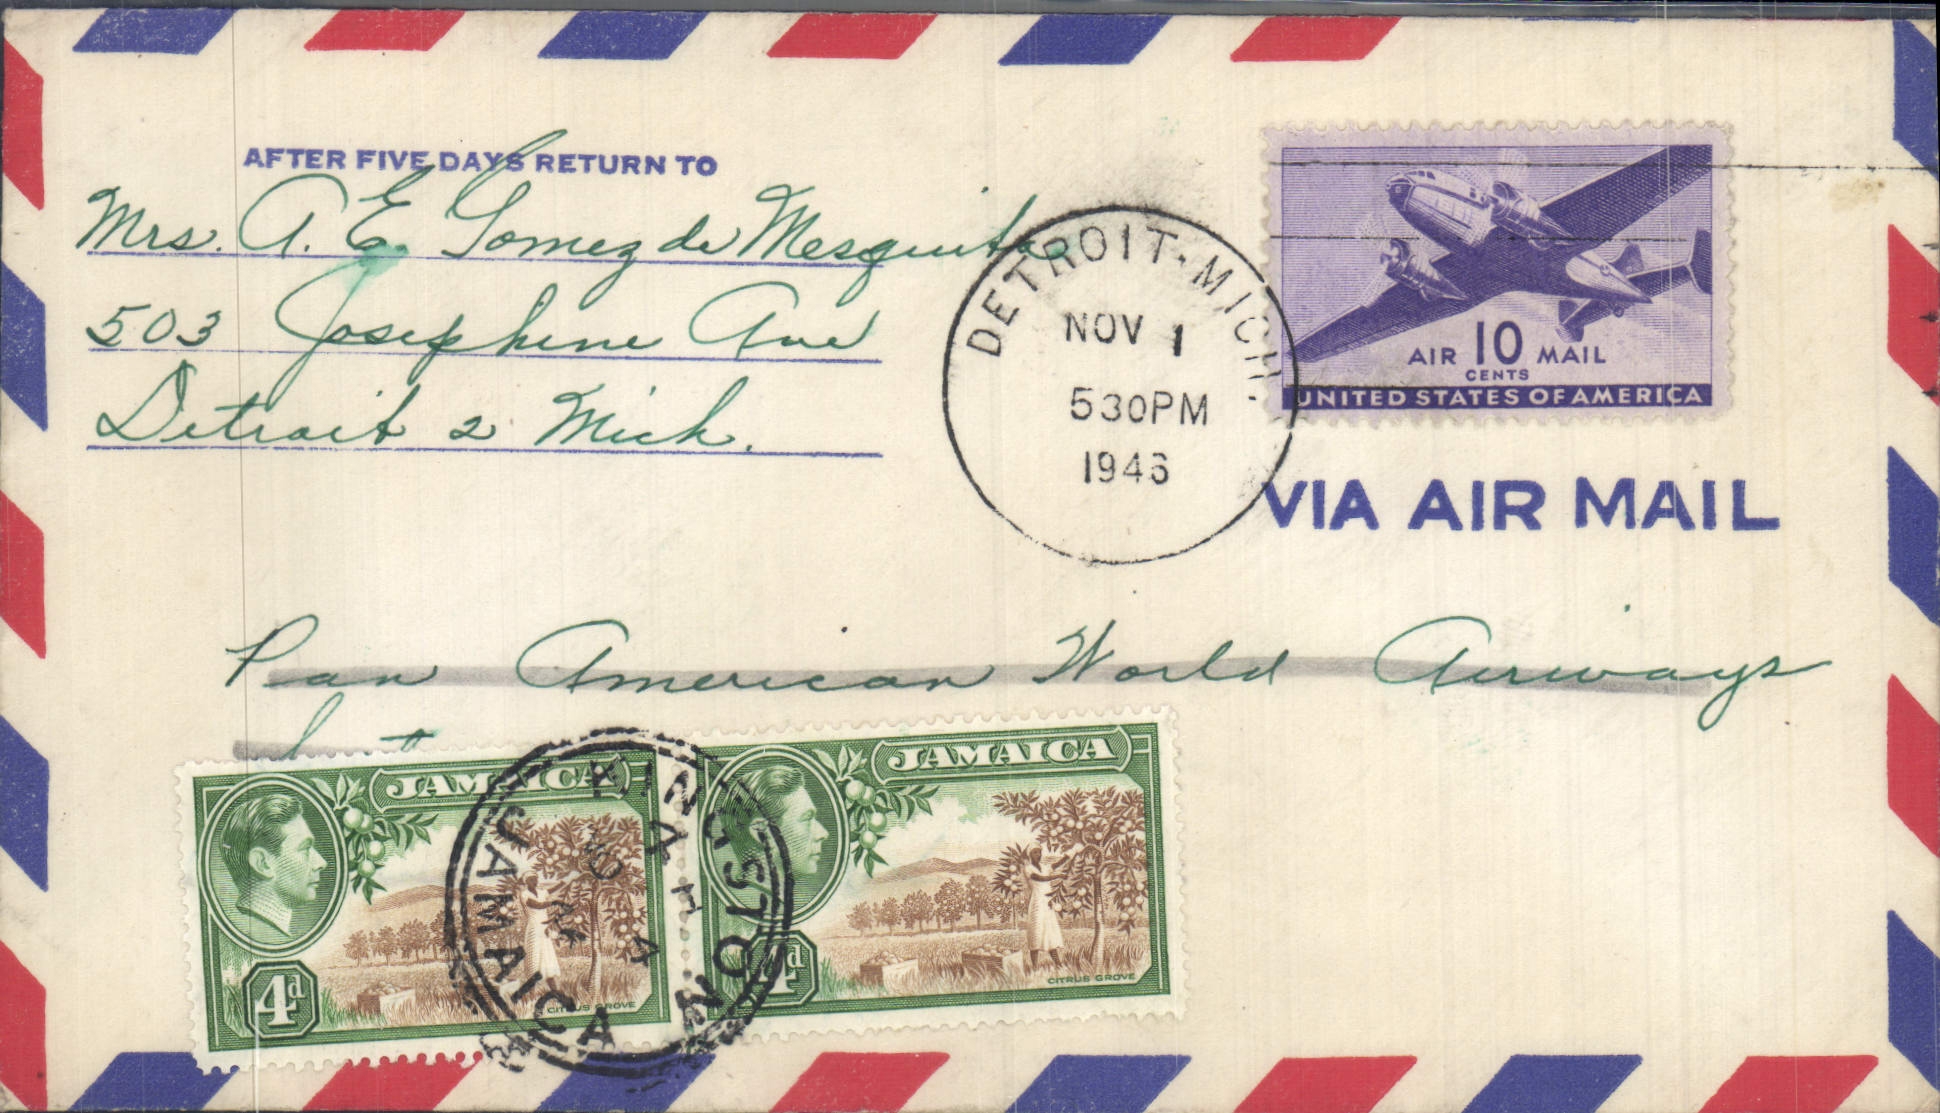 AFTER FIVE DAYS RETURN TO
Mrs. A. E. Gomez de Mesquita
503 Josephine Ave
Detroit 2 Mich.
DETROIT-MICH.
NOV 1
530PM
1946
AIR 10 MAIL
CENTS
UNITED STATES OF AMERICA
VIA AIR MAIL
Pan American World Airways
JAMAICA
4d
CITRUS GROVE
JAMAICA
4d
CITRUS GROVE
KINGSTON
JAMAICA